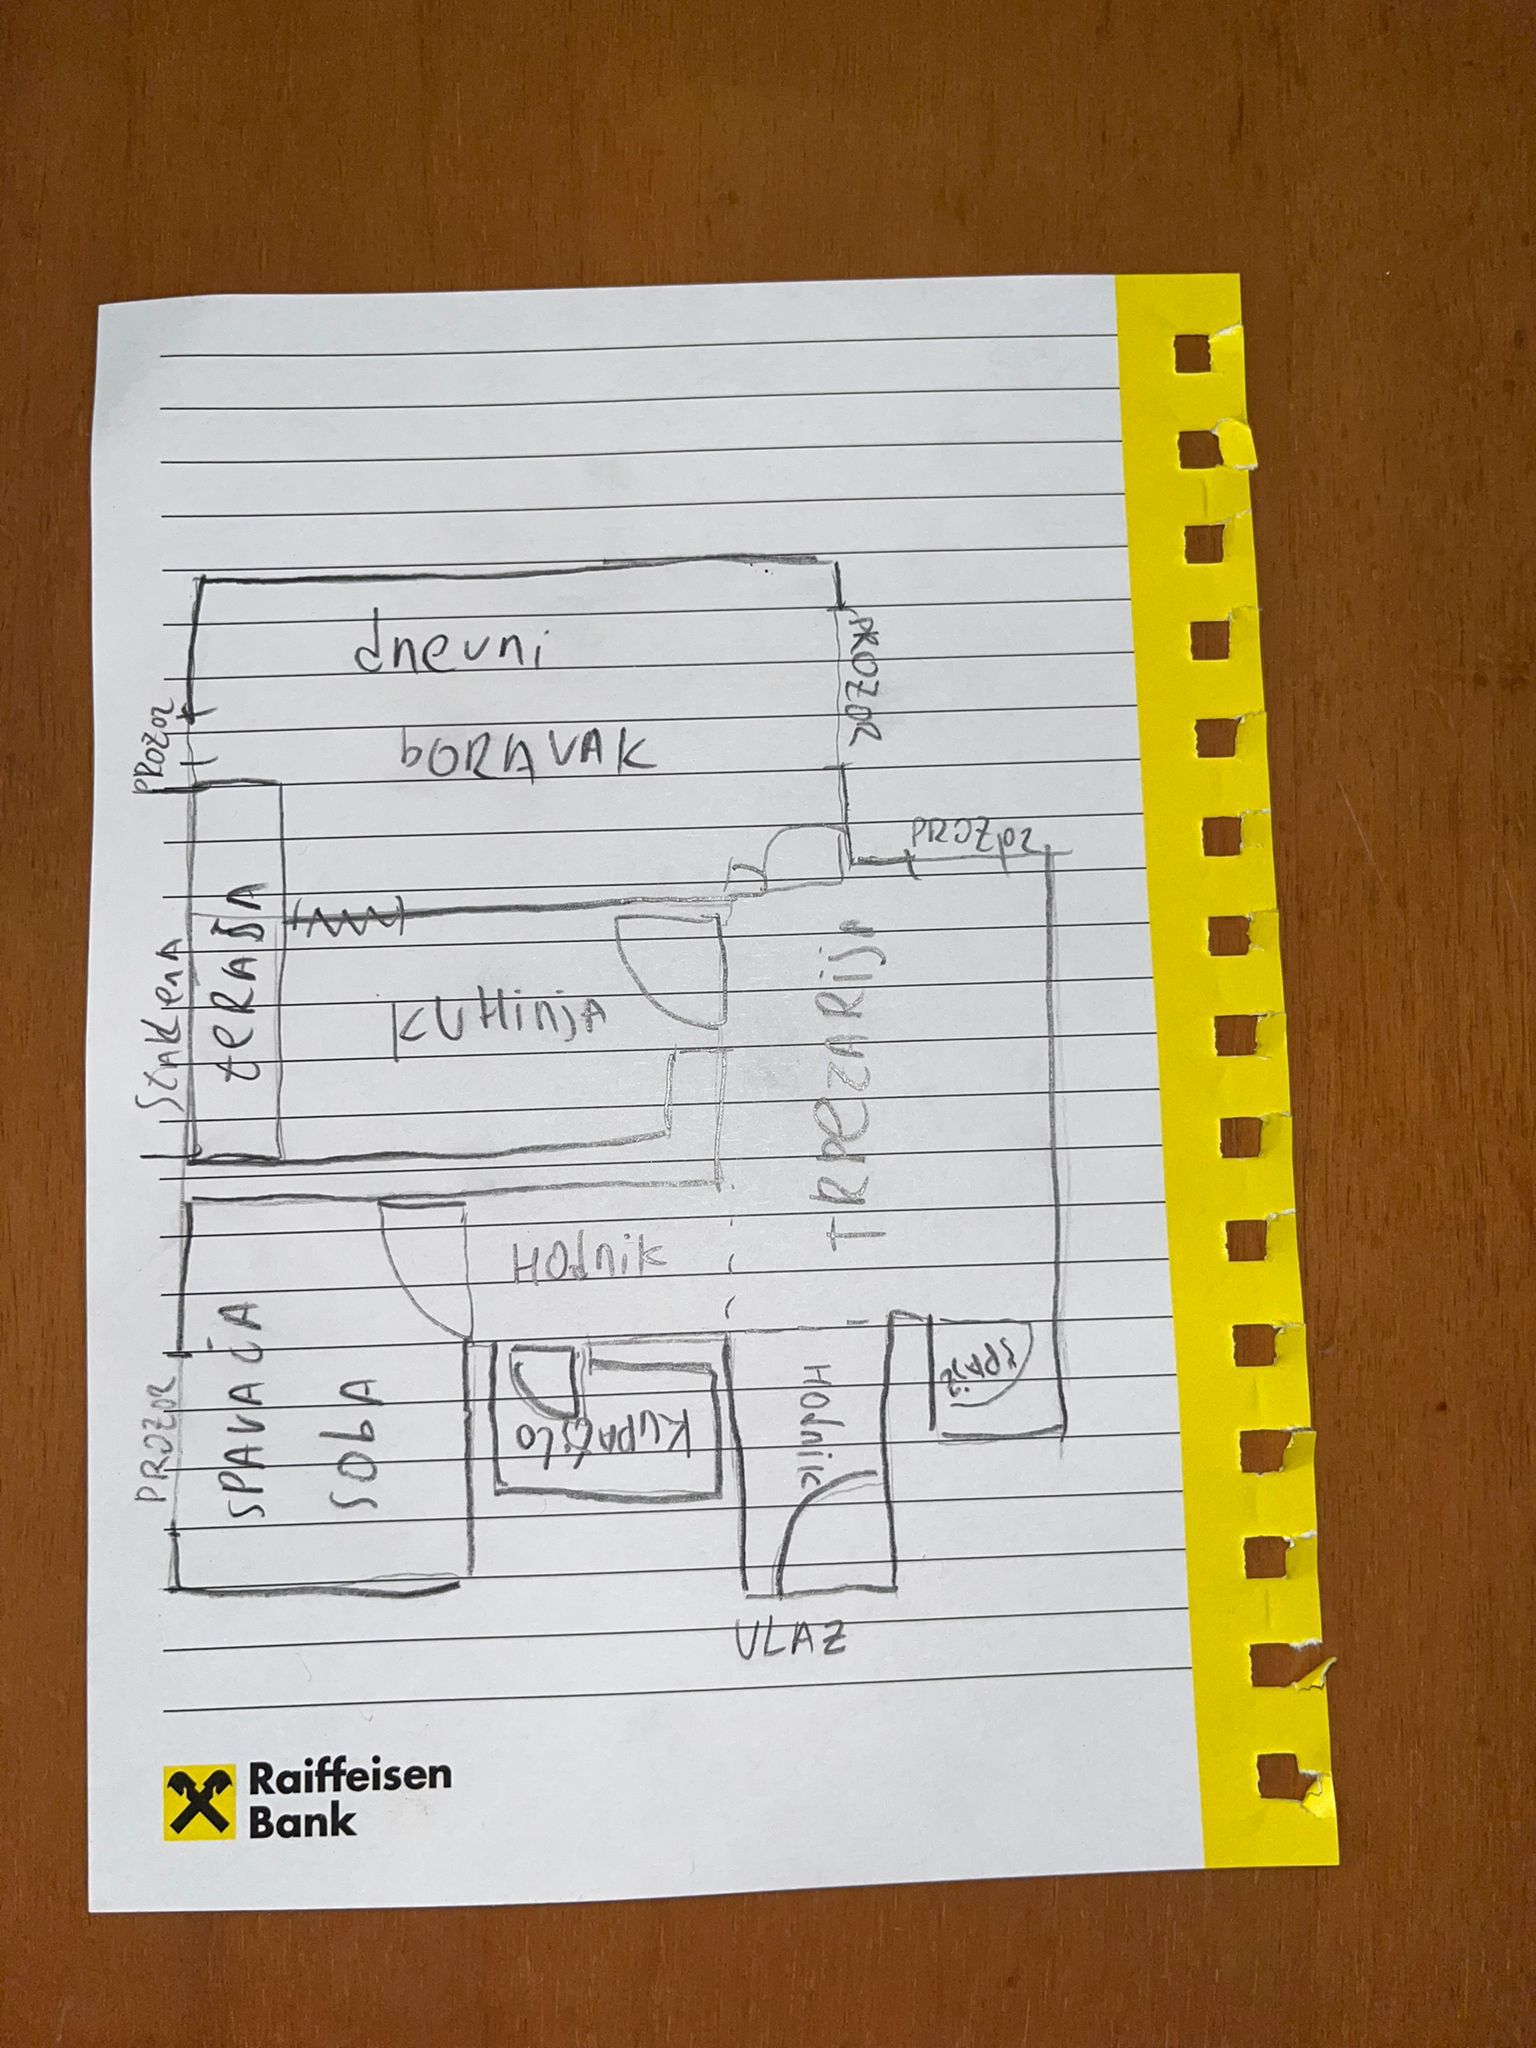 dnevni
PROZOR
PROZOR
bORAVAK
PROZOR
StAKlenA
teRASA
KUHinjA
TRPEZARIjA
HOdnik
PROZOR
SPAVAĆA
SObA
KUPAtILO
HOdnik
SPAJZ
VLAZ
Raiffeisen
Bank